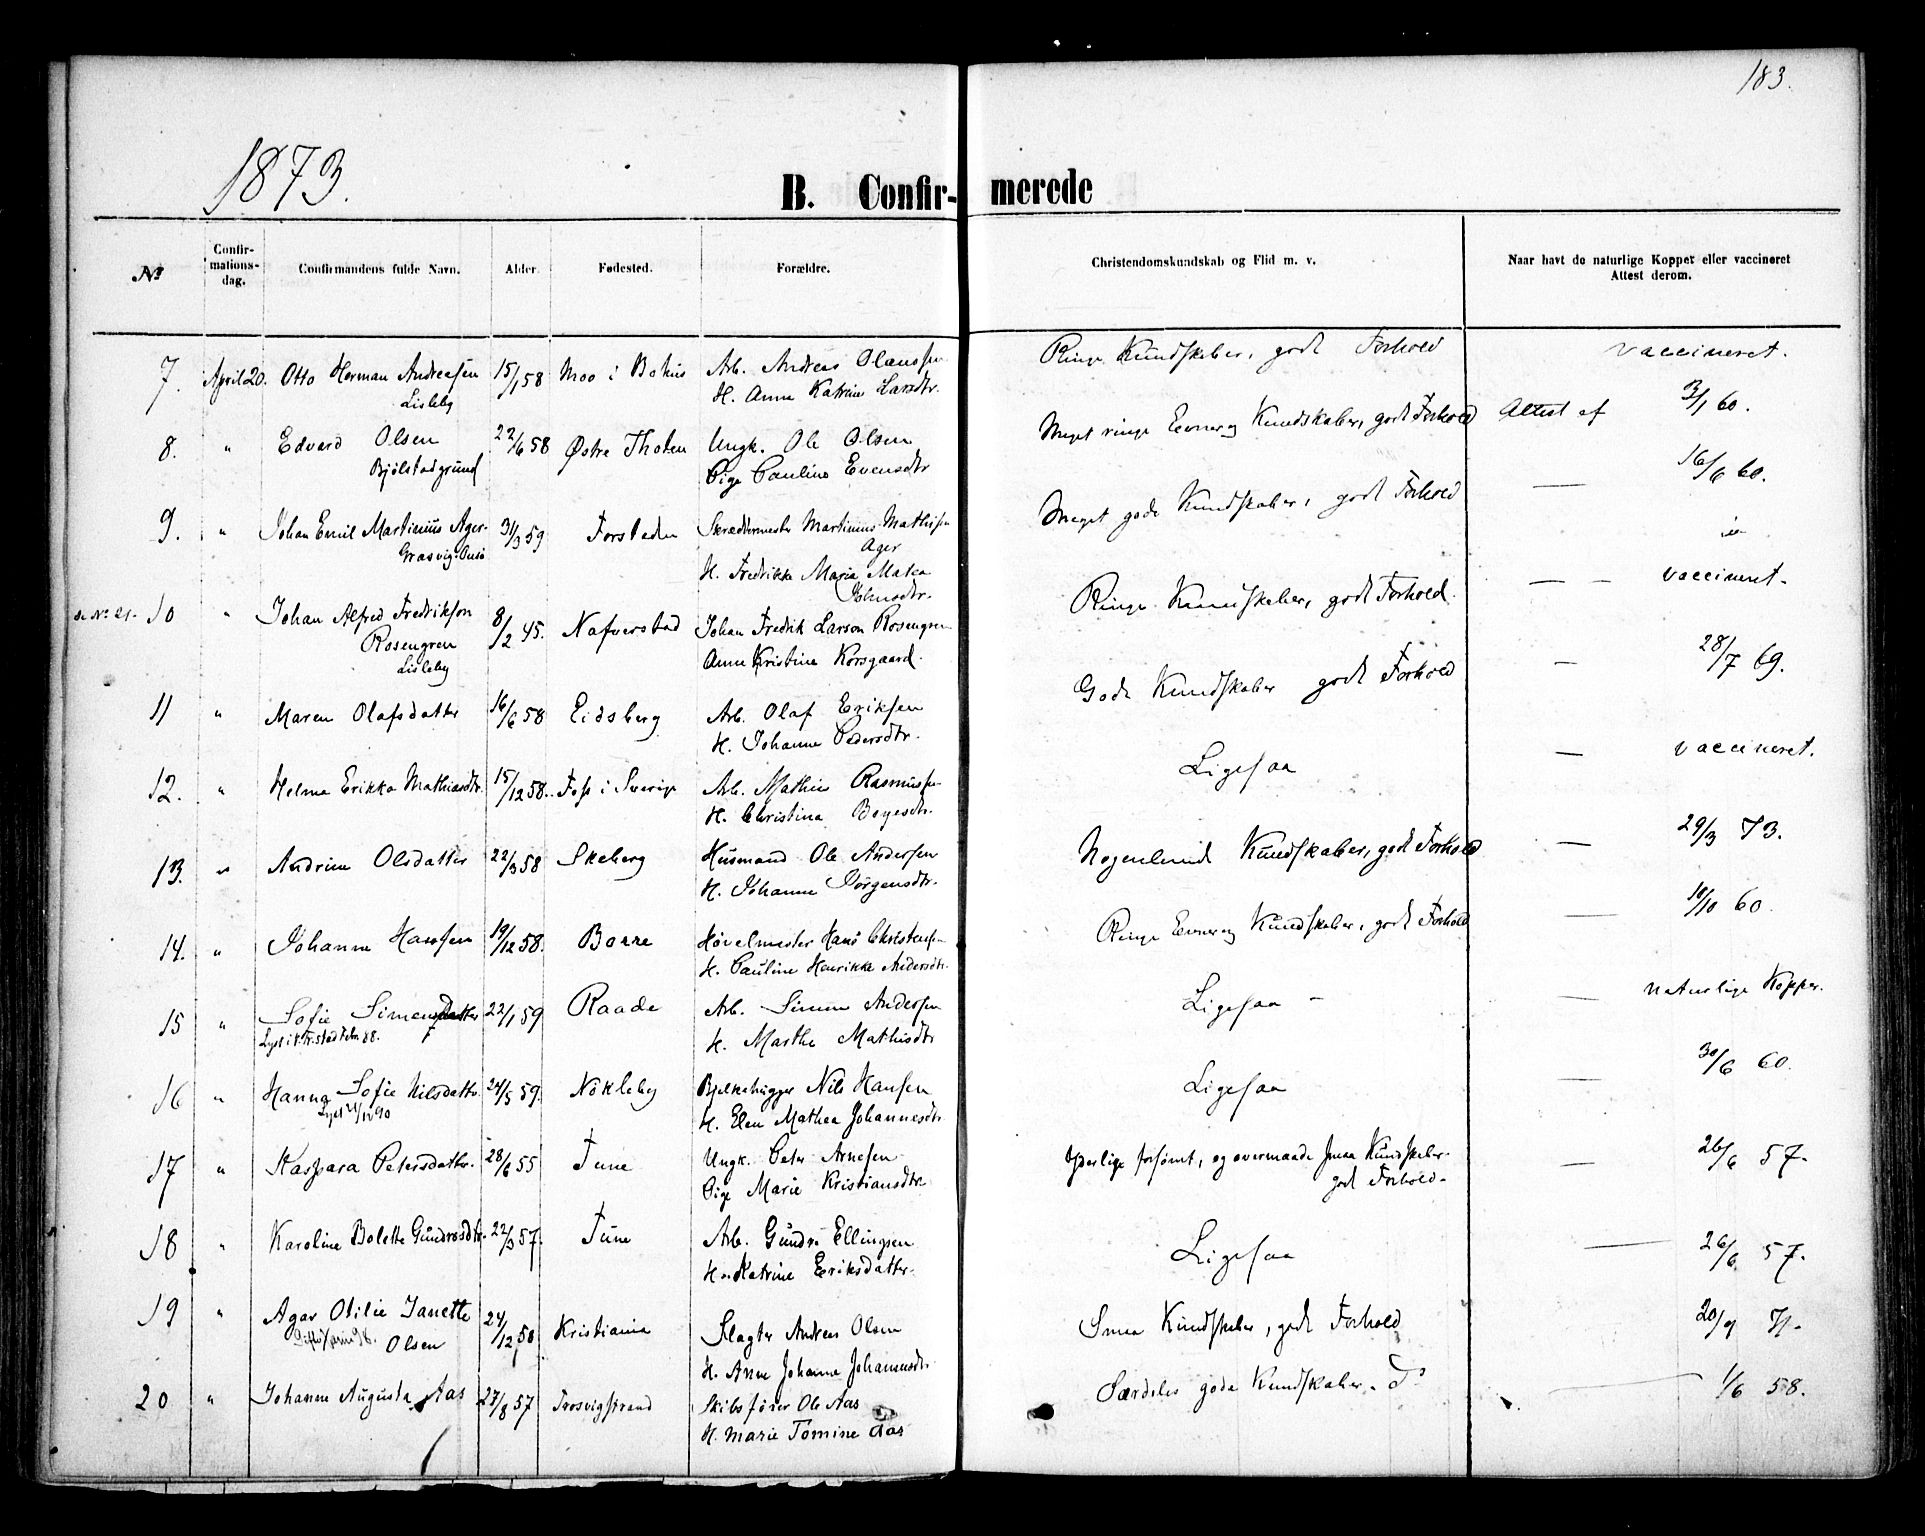 183.
1873.
B. Confirmerede
No
Confirmations-dag.
Confirmandens fulde Navn.
Alder.
Fødested.
Forældre.
Christendomskundskab og Flid m. v.
Naar havt de naturlige Kopper eller vaccineret
Attest derom.
7. April 20. Otto Herman Andreasen 15/1 58 Moo i Bahus Arb. Andreas Olaussen Ringe Kundskaber, godt Forhold vaccineret.
Lisleby H. Anne Katrine Larsdtr.
8. " Edvard Olsen 22/6 58 Østre Thoten Ungk. Ole Olsen Meget ringe Evner og Kundskaber, godt Forhold Attest af 3/1 60.
Bjölstadgrund Pige Pauline Evensdtr
9. " Johan Emil Martinius Ager. 31/3 59 Forstaden Skræddermester Martinius Mathisen Meget gode Kundskaber, godt Forhold — 16/6 60.
Græsvig. Onsö Ager
H. Fredrikke Maria Makea
Johnsdtr.
se No 21. 10 " Johan Alfred Fredrikson 8/2 45. Nafverstad Johan Fredrik Larson Rosengren Ringe Kundskaber, godt Forhold. — — vaccineret.
Rosengren Anne Kristine Korsgaard.
Lisleby
11 " Maren Olafsdatter 16/6 58 Eidsberg Arb. Olaf Eriksen Gode Kundskaber godt Forhold — 28/7 69.
H. Johanne Pedersdtr.
12. " Helma Erikka Mathiasdtr. 15/12 58. Foss i Sverige Arb. Mathis Rasmussen Ligesaa — vaccineret.
H. Christina Boyesdtr.
13. " Andrine Olsdatter 22/3 58 Skeberg Husmand Ole Andersen Nogenlunde Kundskaber, godt Forhold — 29/3 73.
H. Johanne Jörgensdtr.
14. " Johanne Hansen 19/12 58. Borre Hövelmester Hans Christensen Ringe Evner og Kundskaber, godt Forhold — 10/10 60.
H. Pauline Henrikke Andersdtr.
15 " Sofie Simensdatter 22/1 59 Raade Arb. Simen Andersen Ligesaa — — naturlige Kopper.
H. Marthe Mathisdtr
16 " Hanna Sofie Nilsdatter 24/5 59. Nökleby Bjelkehugger Nils Hansen Ligesaa — 30/6 60.
Lyst 21/12 90 H. Elen Mathea Johannesdtr
17 " Kaspara Petersdatter. 28/6 55 Tune Ungk. Peter Arnesen Yderlige forsömt, og overmaade smaa Kundskaber. — 26/6 57.
Pige Marie Kristiansdtr. godt Forhold.
18 " Karoline Bolette Gundrosdtr. 22/3 57. Tune Arb. Gundro Ellingsen Ligesaa — 26/6 57.
H. Katrine Eriksdatter.
19 " Agar Otilie Janette 24/12 58 Kristiania Slagter Andreas Olsen Smaa Kundskaber, godt Forhold 20/9 71.
Olsen H. Anne Johanne Johannesdtr.
20 " Johanne Augusta Aas 27/8 57 Trosvigstrand Skibsförer Ole Aas Særdeles gode Kundskaber. Do — 1/6 58.
H. Marie Tomine Aas